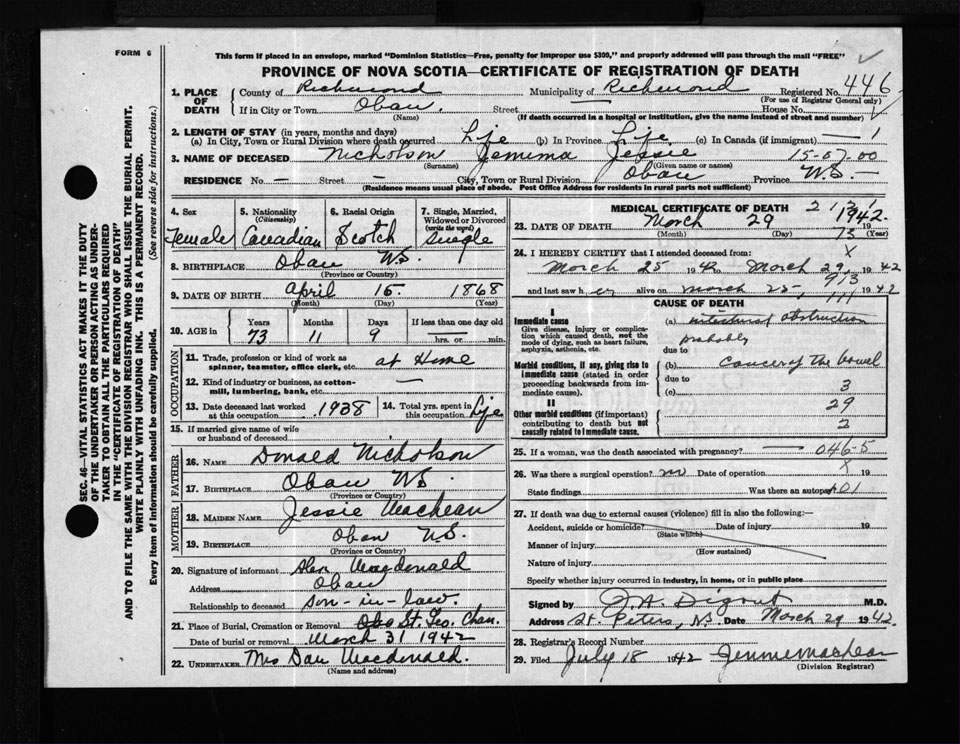 FORM 6
This form if placed in an envelope, marked "Dominion Statistics—Free, penalty for improper use $300," and properly addressed will pass through the mail "FREE"
PROVINCE OF NOVA SCOTIA—CERTIFICATE OF REGISTRATION OF DEATH
1. PLACE OF DEATH County of Richmond Municipality of Richmond Registered No. 446
(For use of Registrar General only)
If in City or Town Oban. Street — House No.
(Name) (If death occurred in a hospital or institution, give the name instead of street and number)
2. LENGTH OF STAY (in years, months and days)
(a) In City, Town or Rural Division where death occurred Life (b) In Province Life (c) In Canada (if immigrant) — 1
3. NAME OF DECEASED Nicholson Jemima Jessie 15-07-00
(Surname) (Given name or names)
RESIDENCE No — Street — City, Town or Rural Division Oban Province N.S. —
(Residence means usual place of abode. Post Office Address for residents in rural parts not sufficient)
SEC. 46—VITAL STATISTICS ACT MAKES IT THE DUTY
OF THE UNDERTAKER OR PERSON ACTING AS UNDER-
TAKER TO OBTAIN ALL THE PARTICULARS REQUIRED
IN THE "CERTIFICATE OF REGISTRATION OF DEATH"
AND TO FILE THE SAME WITH THE DIVISION REGISTRAR WHO SHALL ISSUE THE BURIAL PERMIT.
WRITE PLAINLY WITH UNFADING INK. THIS IS A PERMANENT RECORD.
Every item of information should be carefully supplied. (See reverse side for instructions.)
4. Sex 5. Nationality (Citizenship) 6. Racial Origin 7. Single, Married, Widowed or Divorced (write the word)
Female Canadian Scotch Single
8. BIRTHPLACE Oban N.S.
(Province or Country)
9. DATE OF BIRTH April 15 1868
(Month) (Day) (Year)
10. AGE in Years Months Days If less than one day old
73 11 9 hrs. or min.
OCCUPATION
11. Trade, profession or kind of work as spinner, teamster, office clerk, etc. at Home
12. Kind of industry or business, as cotton-mill, lumbering, bank, etc. —
13. Date deceased last worked at this occupation 1938 14. Total yrs. spent in this occupation Life
15. If married give name of wife or husband of deceased
FATHER
16. NAME Donald Nicholson
17. BIRTHPLACE Oban N.S.
(Province or Country)
MOTHER
18. MAIDEN NAME Jessie MacLean
19. BIRTHPLACE Oban N.S.
(Province or Country)
20. Signature of informant Alex Macdonald
Address Oban
Relationship to deceased son-in-law.
21. Place of Burial, Cremation or Removal St. Geo. Chan.
Date of burial or removal March 31 1942
22. UNDERTAKER Mrs Dan Macdonald.
(Name and address)
MEDICAL CERTIFICATE OF DEATH 2 1 2 1
23. DATE OF DEATH March 29 1942
(Month) (Day) 73 (Year)
24. I HEREBY CERTIFY that I attended deceased from: X
March 25 1942 to March 29, 1942
913
and last saw her alive on March 25, 1942
CAUSE OF DEATH
I
Immediate cause
Give disease, injury or complication which caused death, not the mode of dying, such as heart failure, asphyxia, asthenia, etc.
(a) intestinal obstruction
probably
due to
Morbid conditions, if any, giving rise to immediate cause (stated in order proceeding backwards from immediate cause).
(b) Cancer of the bowel
due to
(c) 3
II
29
Other morbid conditions (if important) contributing to death but not causally related to immediate cause.
25. If a woman, was the death associated with pregnancy? — 046-5
26. Was there a surgical operation? no Date of operation X 19
State findings Was there an autopsy? 01
27. If death was due to external causes (violence) fill in also the following:—
Accident, suicide or homicide? Date of injury 19
(State which)
Manner of injury
(How sustained)
Nature of injury
Specify whether injury occurred in industry, in home, or in public place
Signed by J. A. Digout M.D.
Address St. Peters, N.S. Date March 29 1942.
28. Registrar's Record Number
29. Filed July 18 1942 Jennie MacLean
(Division Registrar)